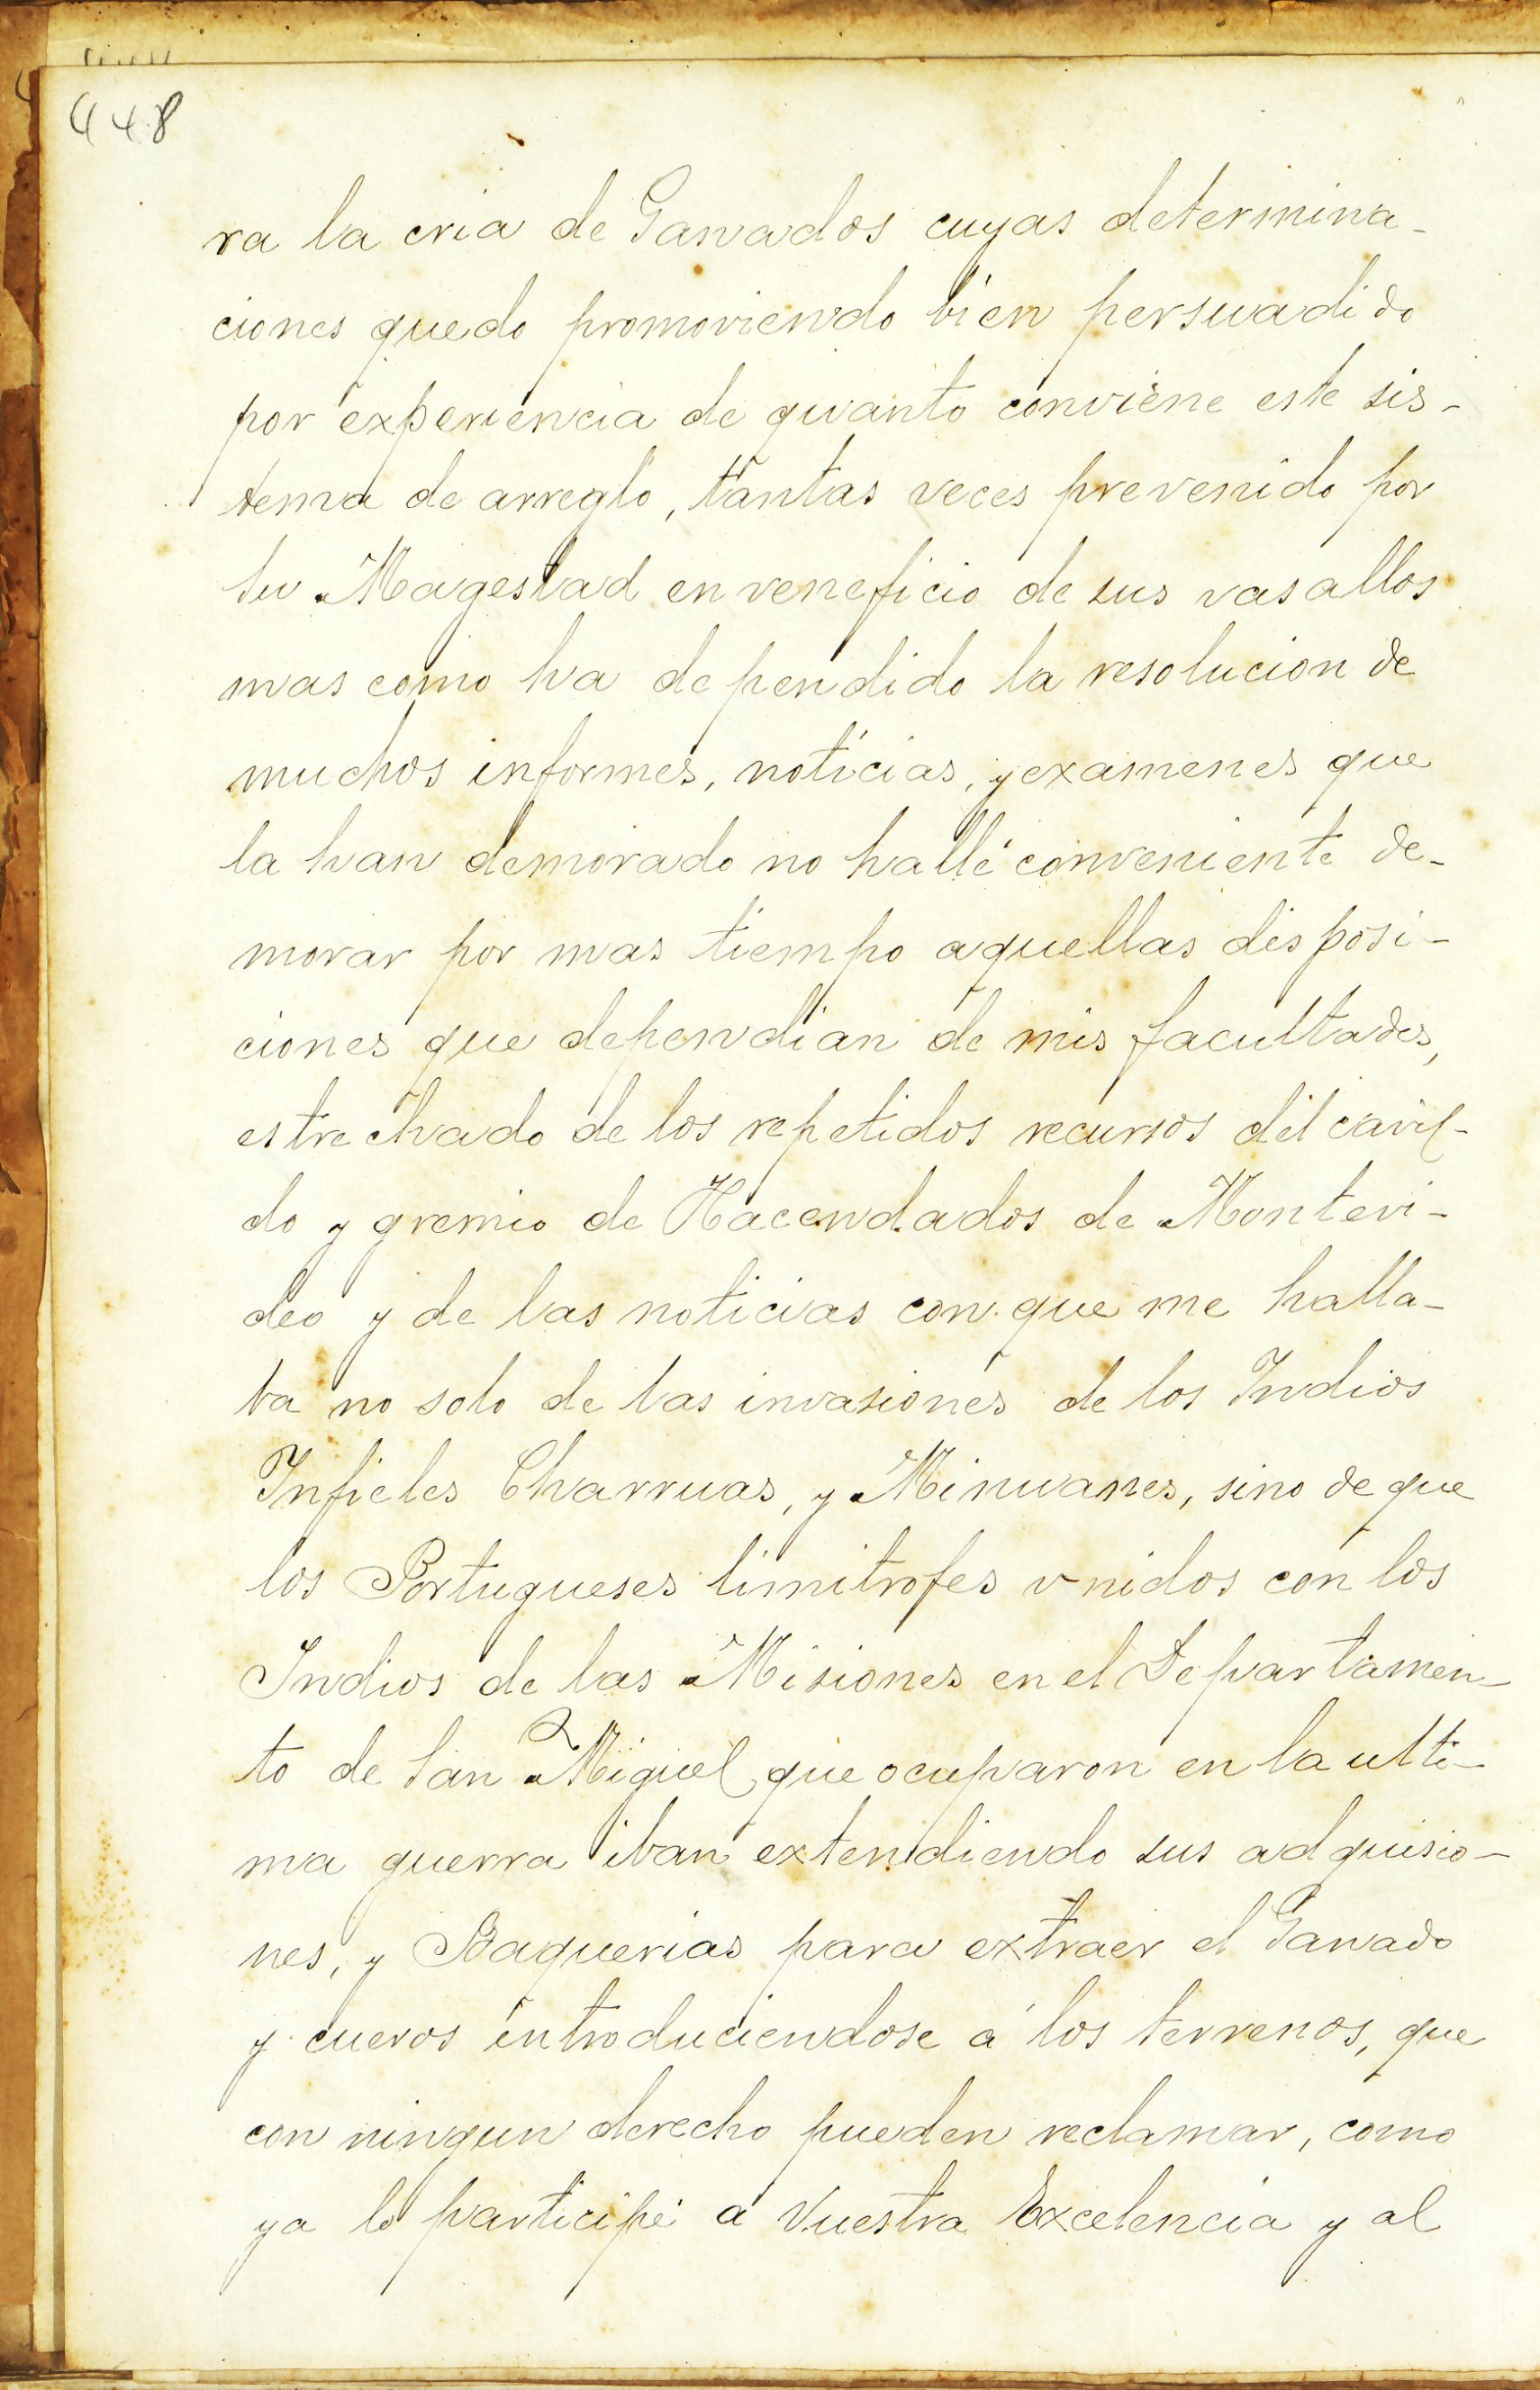 448
ra la cria de Ganados cuyas determina-
ciones quedo promoviendo bien persuadido
por experiencia de quanto conviene este sis-
tema de arreglo, tantas veces prevenido por
su Magestad en veneficio de sus vasallos
mas como ha dependido la resolucion de
muchos informes, noticias, y examenes que
la han demorado no hallé conveniente de-
morar por mas tiempo aquellas disposi-
ciones que dependian de mis facultades,
estrechado de los repetidos recursos del cavil-
do y gremio de Hacendados de Montevi-
deo y de las noticias con que me halla-
ba no solo de las invasiones de los Indios
Infieles Charruas, y Minuanes, sino de que
los Portugueses limitrofes vnidos con los
Indios de las Misiones en el Departamen-
to de San Miguel que ocuparon en la ulti-
ma guerra iban extendiendo sus adquisio-
nes, y Baquerias para extraer el Ganado
y cueros introduciendose á los terrenos, que
con ningun derecho pueden reclamar, como
ya lo participé á Vuestra Excelencia y al